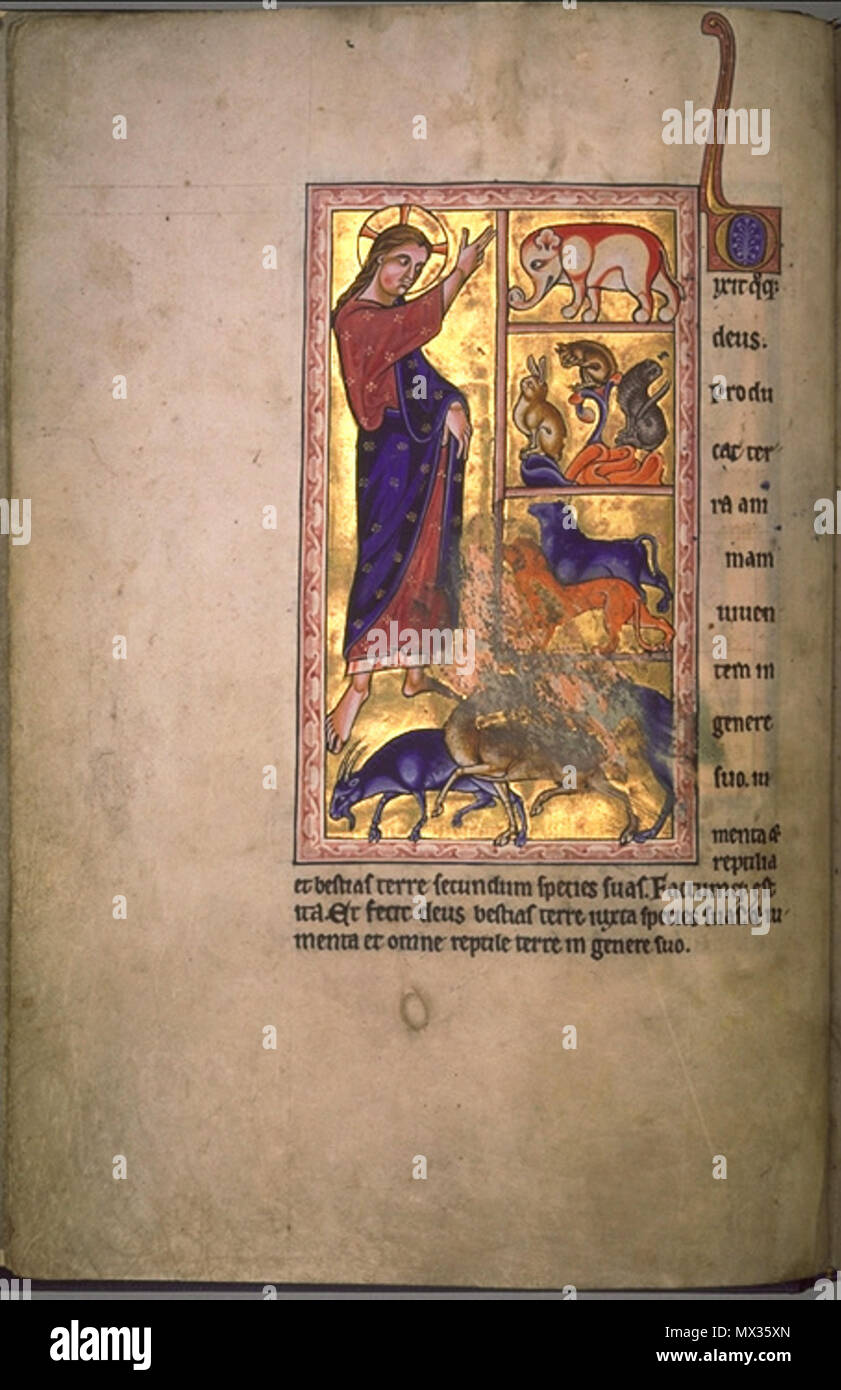 ixit q̄q;
deus.
produ
cat ter
ra am
mam
uiuen
tem in
genere
suo. iu
menta &
reptilia
et bestias terre secundum species suas. Factumq; est
ita. Et fecit deus bestias terre iuxta species suas & iu
menta et omne reptile terre in genere suo.
alamy
Image ID: MX35XN
www.alamy.com